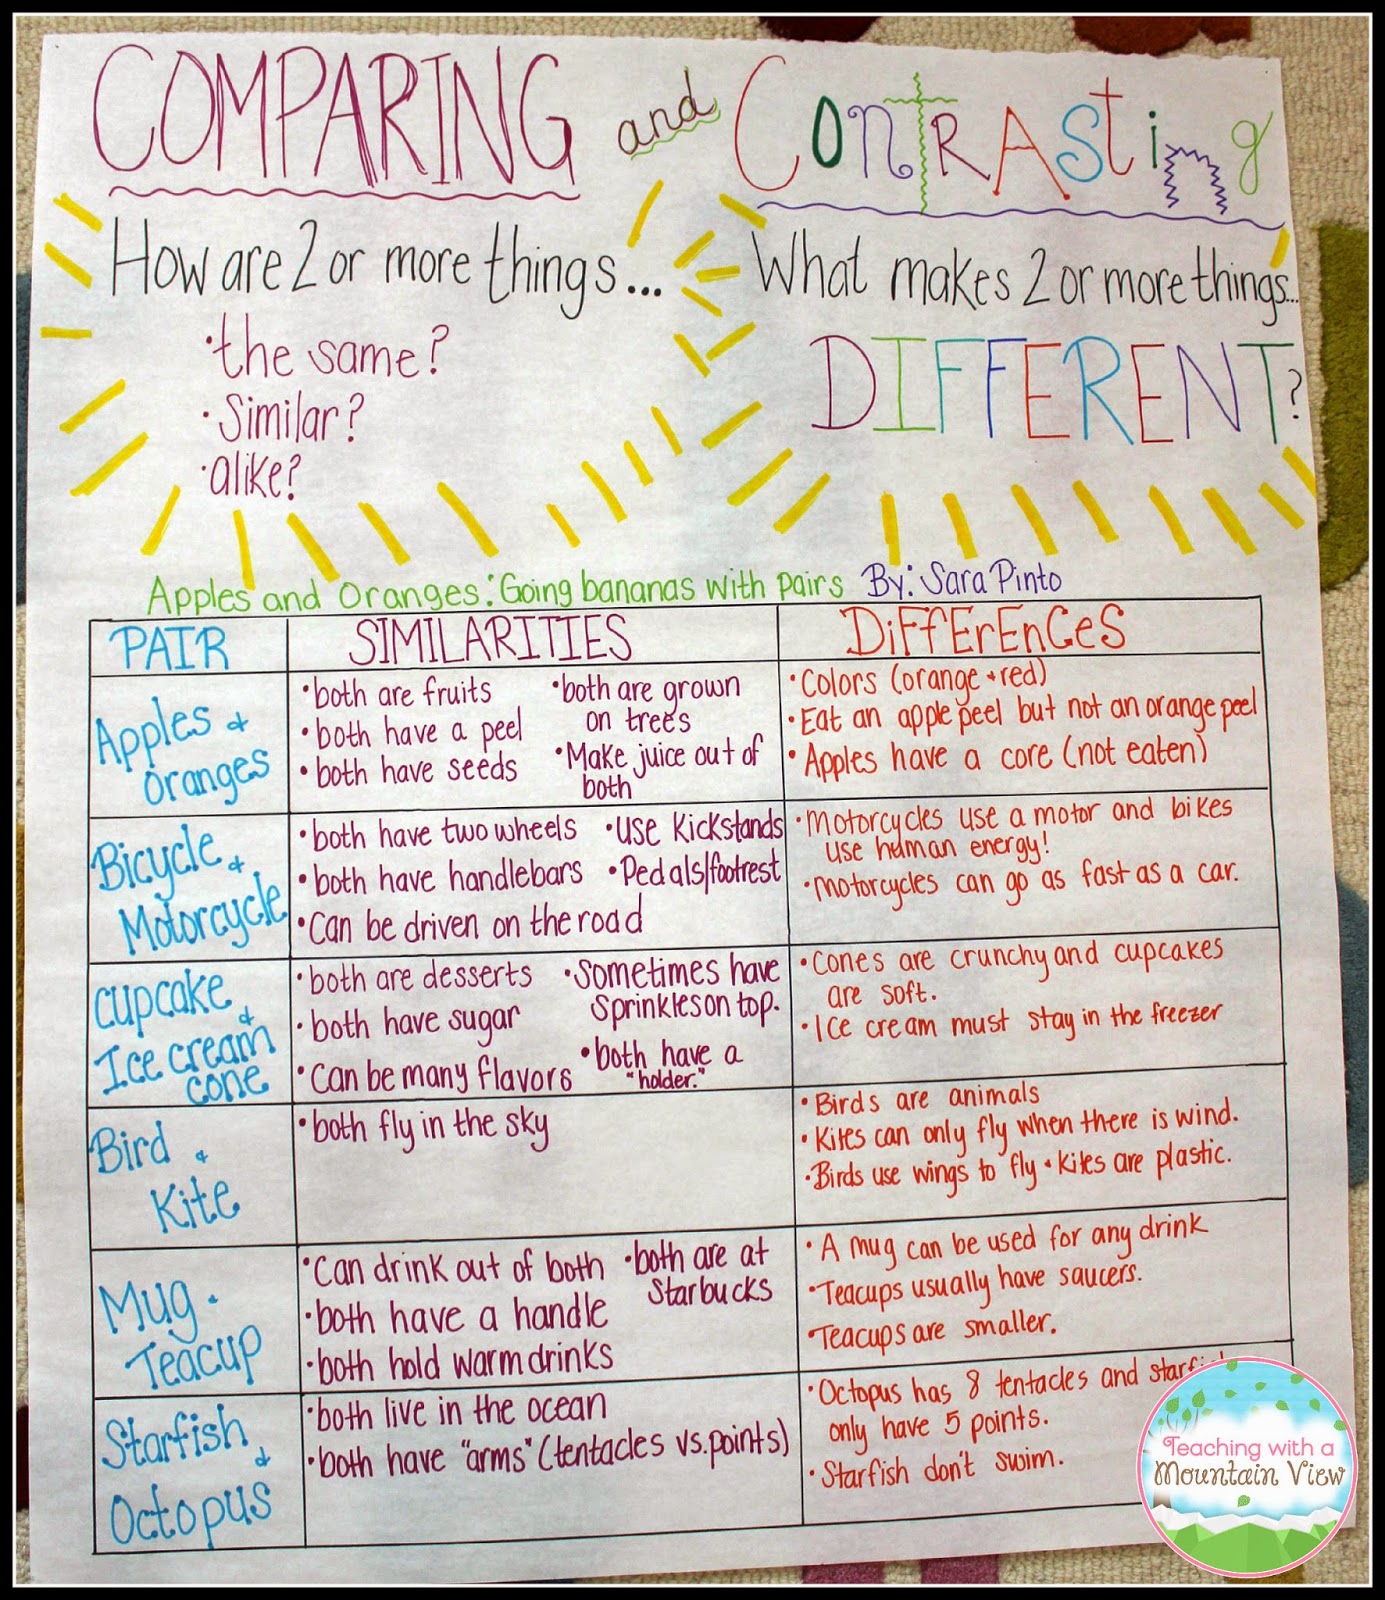 COMPARING and Contrasting
How are 2 or more things...
• the same?
• Similar?
• alike?
What makes 2 or more things...
DIFFERENT?
Apples and Oranges: Going bananas with pairs By: Sara Pinto
PAIR
SIMILARITIES
DiFfErEnCeS
Apples +
Oranges
• both are fruits
• both have a peel
• both have seeds
• both are grown
on trees
• Make juice out of
both
• Colors (orange + red)
• Eat an apple peel but not an orange peel
• Apples have a core (not eaten)
Bicycle +
Motorcycle
• both have two wheels
• both have handlebars
• Can be driven on the road
• use kickstands
• Pedals/footrest
• Motorcycles use a motor and bikes
use human energy!
• Motorcycles can go as fast as a car.
Cupcake +
Ice cream
cone
• both are desserts
• both have sugar
• Can be many flavors
• Sometimes have
Sprinkles on top.
• both have a
"holder."
• Cones are crunchy and cupcakes
are soft.
• Ice cream must stay in the freezer
Bird +
Kite
• both fly in the sky
• Birds are animals
• Kites can only fly when there is wind.
• Birds use wings to fly + kites are plastic.
Mug +
Teacup
• Can drink out of both
• both have a handle
• both hold warm drinks
• both are at
Starbucks
• A mug can be used for any drink
• Teacups usually have saucers.
• Teacups are smaller.
Starfish +
Octopus
• both live in the ocean
• both have "arms" (tentacles vs. points)
• Octopus has 8 tentacles and starfish
only have 5 points.
• Starfish don't swim.
Teaching with a
Mountain View